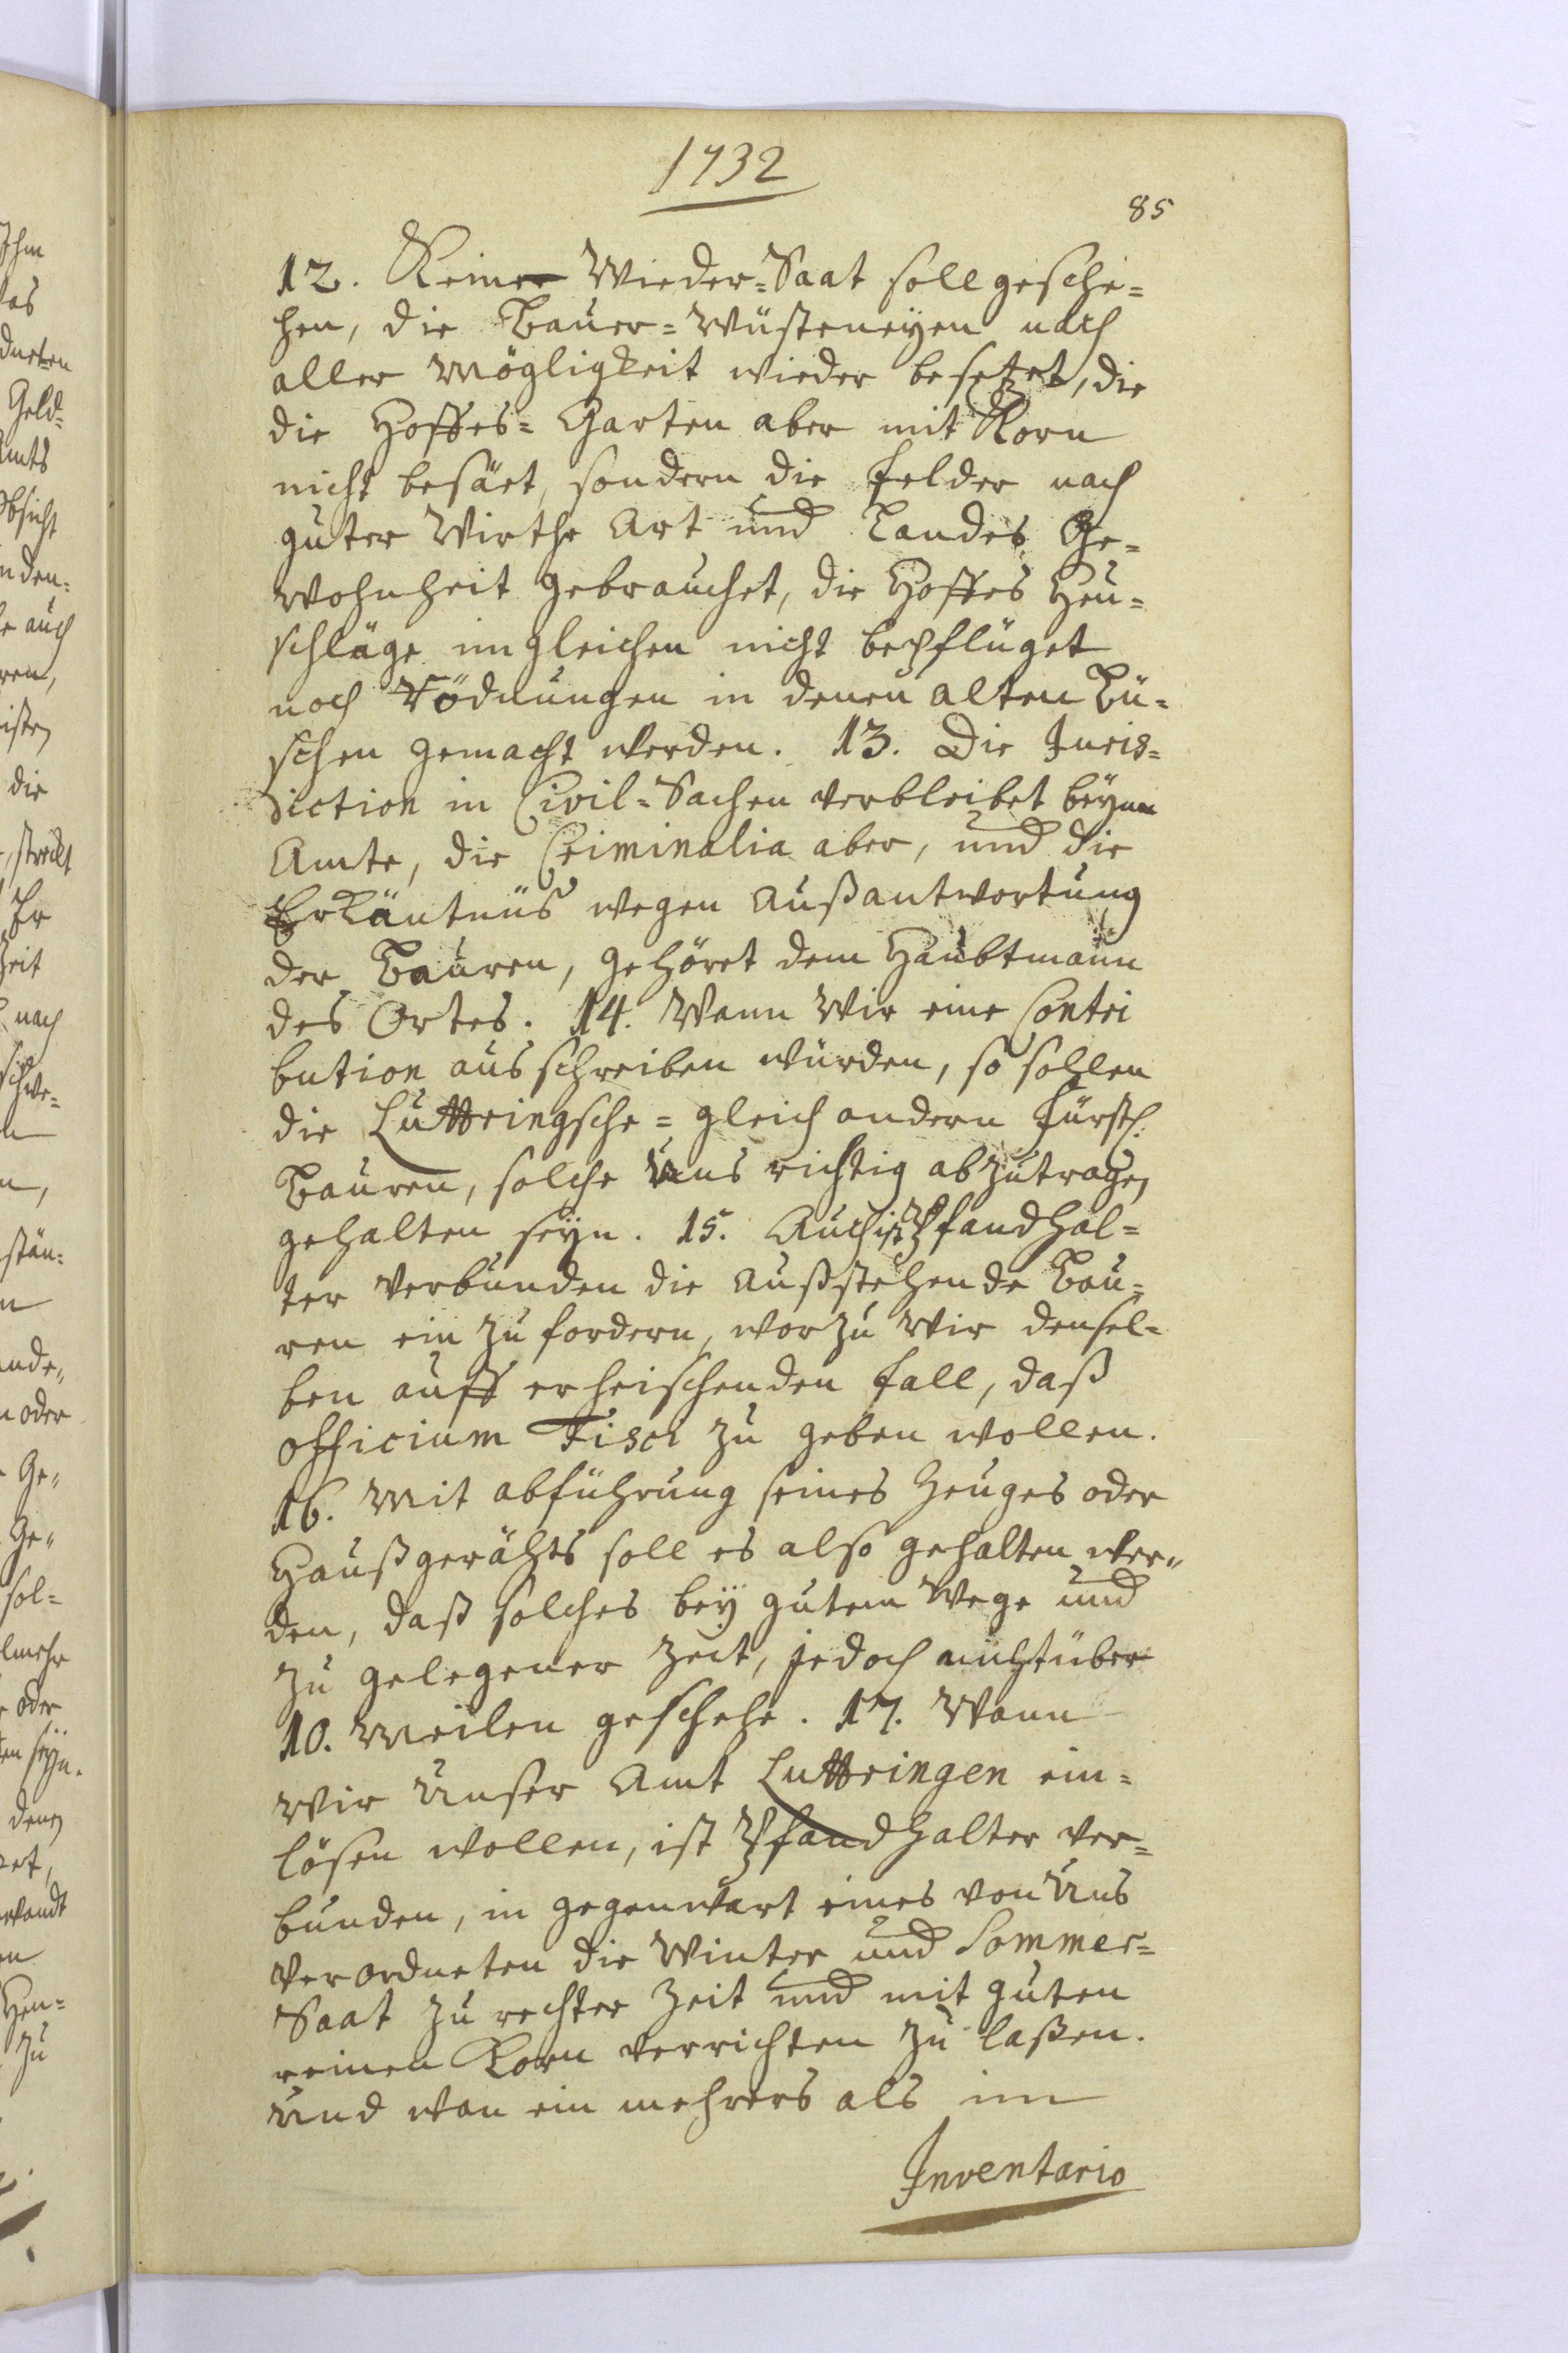 1732
85
12. Keine Wieder=Saat soll gesche=
hen, die Bauer=Wüsteneyen nach
aller Mögligkeit wieder besetzet, die
die Hoffes=Garten aber mit Korn
nicht besäet, sondern die Felder nach
guter Wirthe Art und Landes Ge=
wohnheit gebrauchet, die Hoffes Heu=
schläge imgleichen nicht bepflüget
noch Rödnungen in denen alten Bü=
schen gemacht werden. 13. Die Juris=
diction in Civil=Sachen verbleibet beym
Amte, die Criminalia aber, und die
Erkäntnüs wegen Außantwortung
der Bauren, gehöret dem Haubtmann
des Ortes. 14. Wann Wir eine Contri
bution ausschreiben würden, so sollen
die Luttringsche= gleich andern Fürstl.
Bauren, solche Uns richtig abzutragen
gehalten seyn. 15. Auch ist Pfandhal=
ter verbunden die außstehende Bau=
ren ein zu fordern, worzu Wir densel=
ben auff erheischenden Fall, daß
officium Fisci zu geben wollen.
16. Mit abführung seines Zeuges oder
Haußgeräths soll es also gehalten wer=
den, daß solches bey gutem Wege und
zu gelegener Zeit, jedoch nicht über
10. Meilen geschehe. 17. Wann
Wir Unser Amt Luttringen ein=
lösen wollen, ist Pfandhalter ver=
bunden, in gegenwart eines von Uns
verordneten die Winter und Sommer=
Saat zu rechter Zeit und mit guten
reinen Korn verrichten zu laßen.
Und wan ein mehrers als im
Inventario